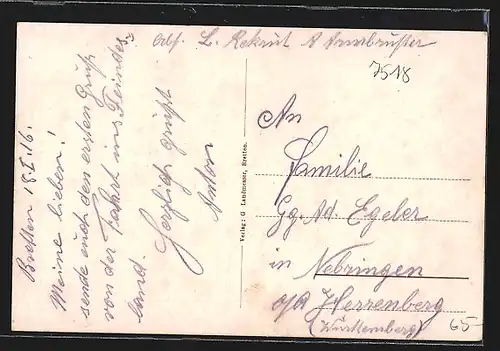 Abs. L. Rekrut A Armbruster
7518
Bretten 18.I.16.
Meine lieben!
sende euch den ersten Gruß
von der Fahrt ins Feindes-
land.
Herzlich grüßt
Anton
Verlag: G Landmesser, Bretten.
An
Familie
Gg. Ad. Egeler
in Nebringen
o/A Herrenberg
(Württemberg)
65